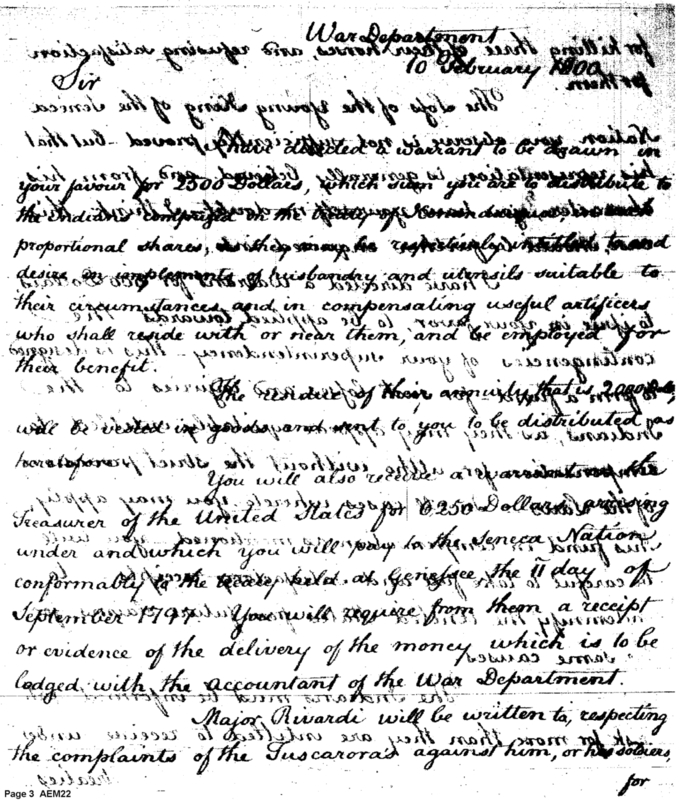 War Department
10 February 1800
Sir
I have directed a warrant to be drawn in
your favour for 2500 Dollars, which sum you are to distribute to
the Indians comprized in the treaty of
proportional shares, as they may be respectively entitled to and
desire in implements of husbandry and utensils suitable to
their circumstances, and in compensating useful artificers
who shall reside with or near them, and be employed for
their benefit.
The residue of their annuity that is 2000
will be vested in goods, and sent to you to be distributed as
heretofore
You will also receive a warrant on the
Treasurer of the United States for 6.250 Dollars arising
under and which you will pay to the Seneca Nation
conformably to the treaty held at Genessee the 11 day of
September 1797 You will require from them a receipt
or evidence of the delivery of the money which is to be
lodged with the accountant of the War Department.
Major Rivardi will be written to, respecting
the complaints of the Tuscarora's against him, or his soldiers,
for
Page 3 AEM22